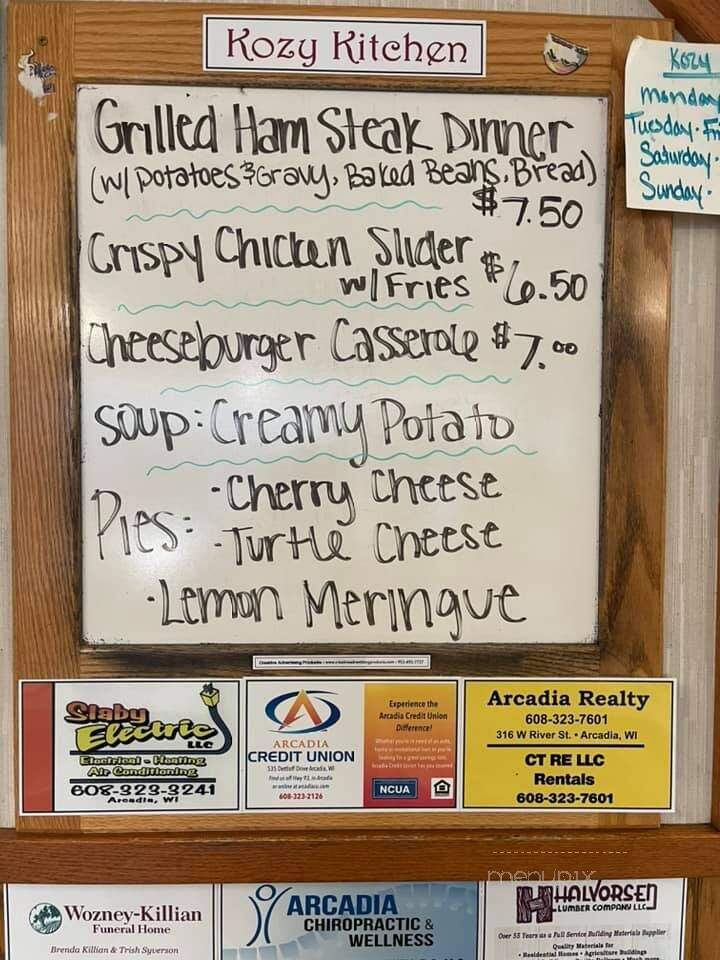 Kozy Kitchen
Grilled Ham Steak Dinner
(w/ Potatoes & Gravy, Baked Beans, Bread)
$7.50
Crispy Chicken Slider
w/ Fries $6.50
Cheeseburger Casserole $7.00
Soup: Creamy Potato
Pies: • Cherry Cheese
• Turtle Cheese
• Lemon Meringue
Kozy
Monday
Tuesday - Fri
Saturday -
Sunday -
Slaby
Electric
LLC
Electrical - Heating
Air Conditioning
608-323-3241
Arcadia, WI
ARCADIA
CREDIT UNION
535 Dettloff Drive Arcadia, WI
Find us off Hwy 93, in Arcadia
or online at arcadiacu.com
608-323-2126
Experience the
Arcadia Credit Union
Difference!
NCUA
Arcadia Realty
608-323-7601
316 W River St. • Arcadia, WI
CT RE LLC
Rentals
608-323-7601
menupix
Wozney-Killian
Funeral Home
Brenda Killian & Trish Syverson
ARCADIA
CHIROPRACTIC &
WELLNESS
HALVORSEN
LUMBER COMPANY LLC
Over 55 Years as a Full Service Building Materials Supplier
Quality Materials for
• Residential Homes • Agriculture Buildings